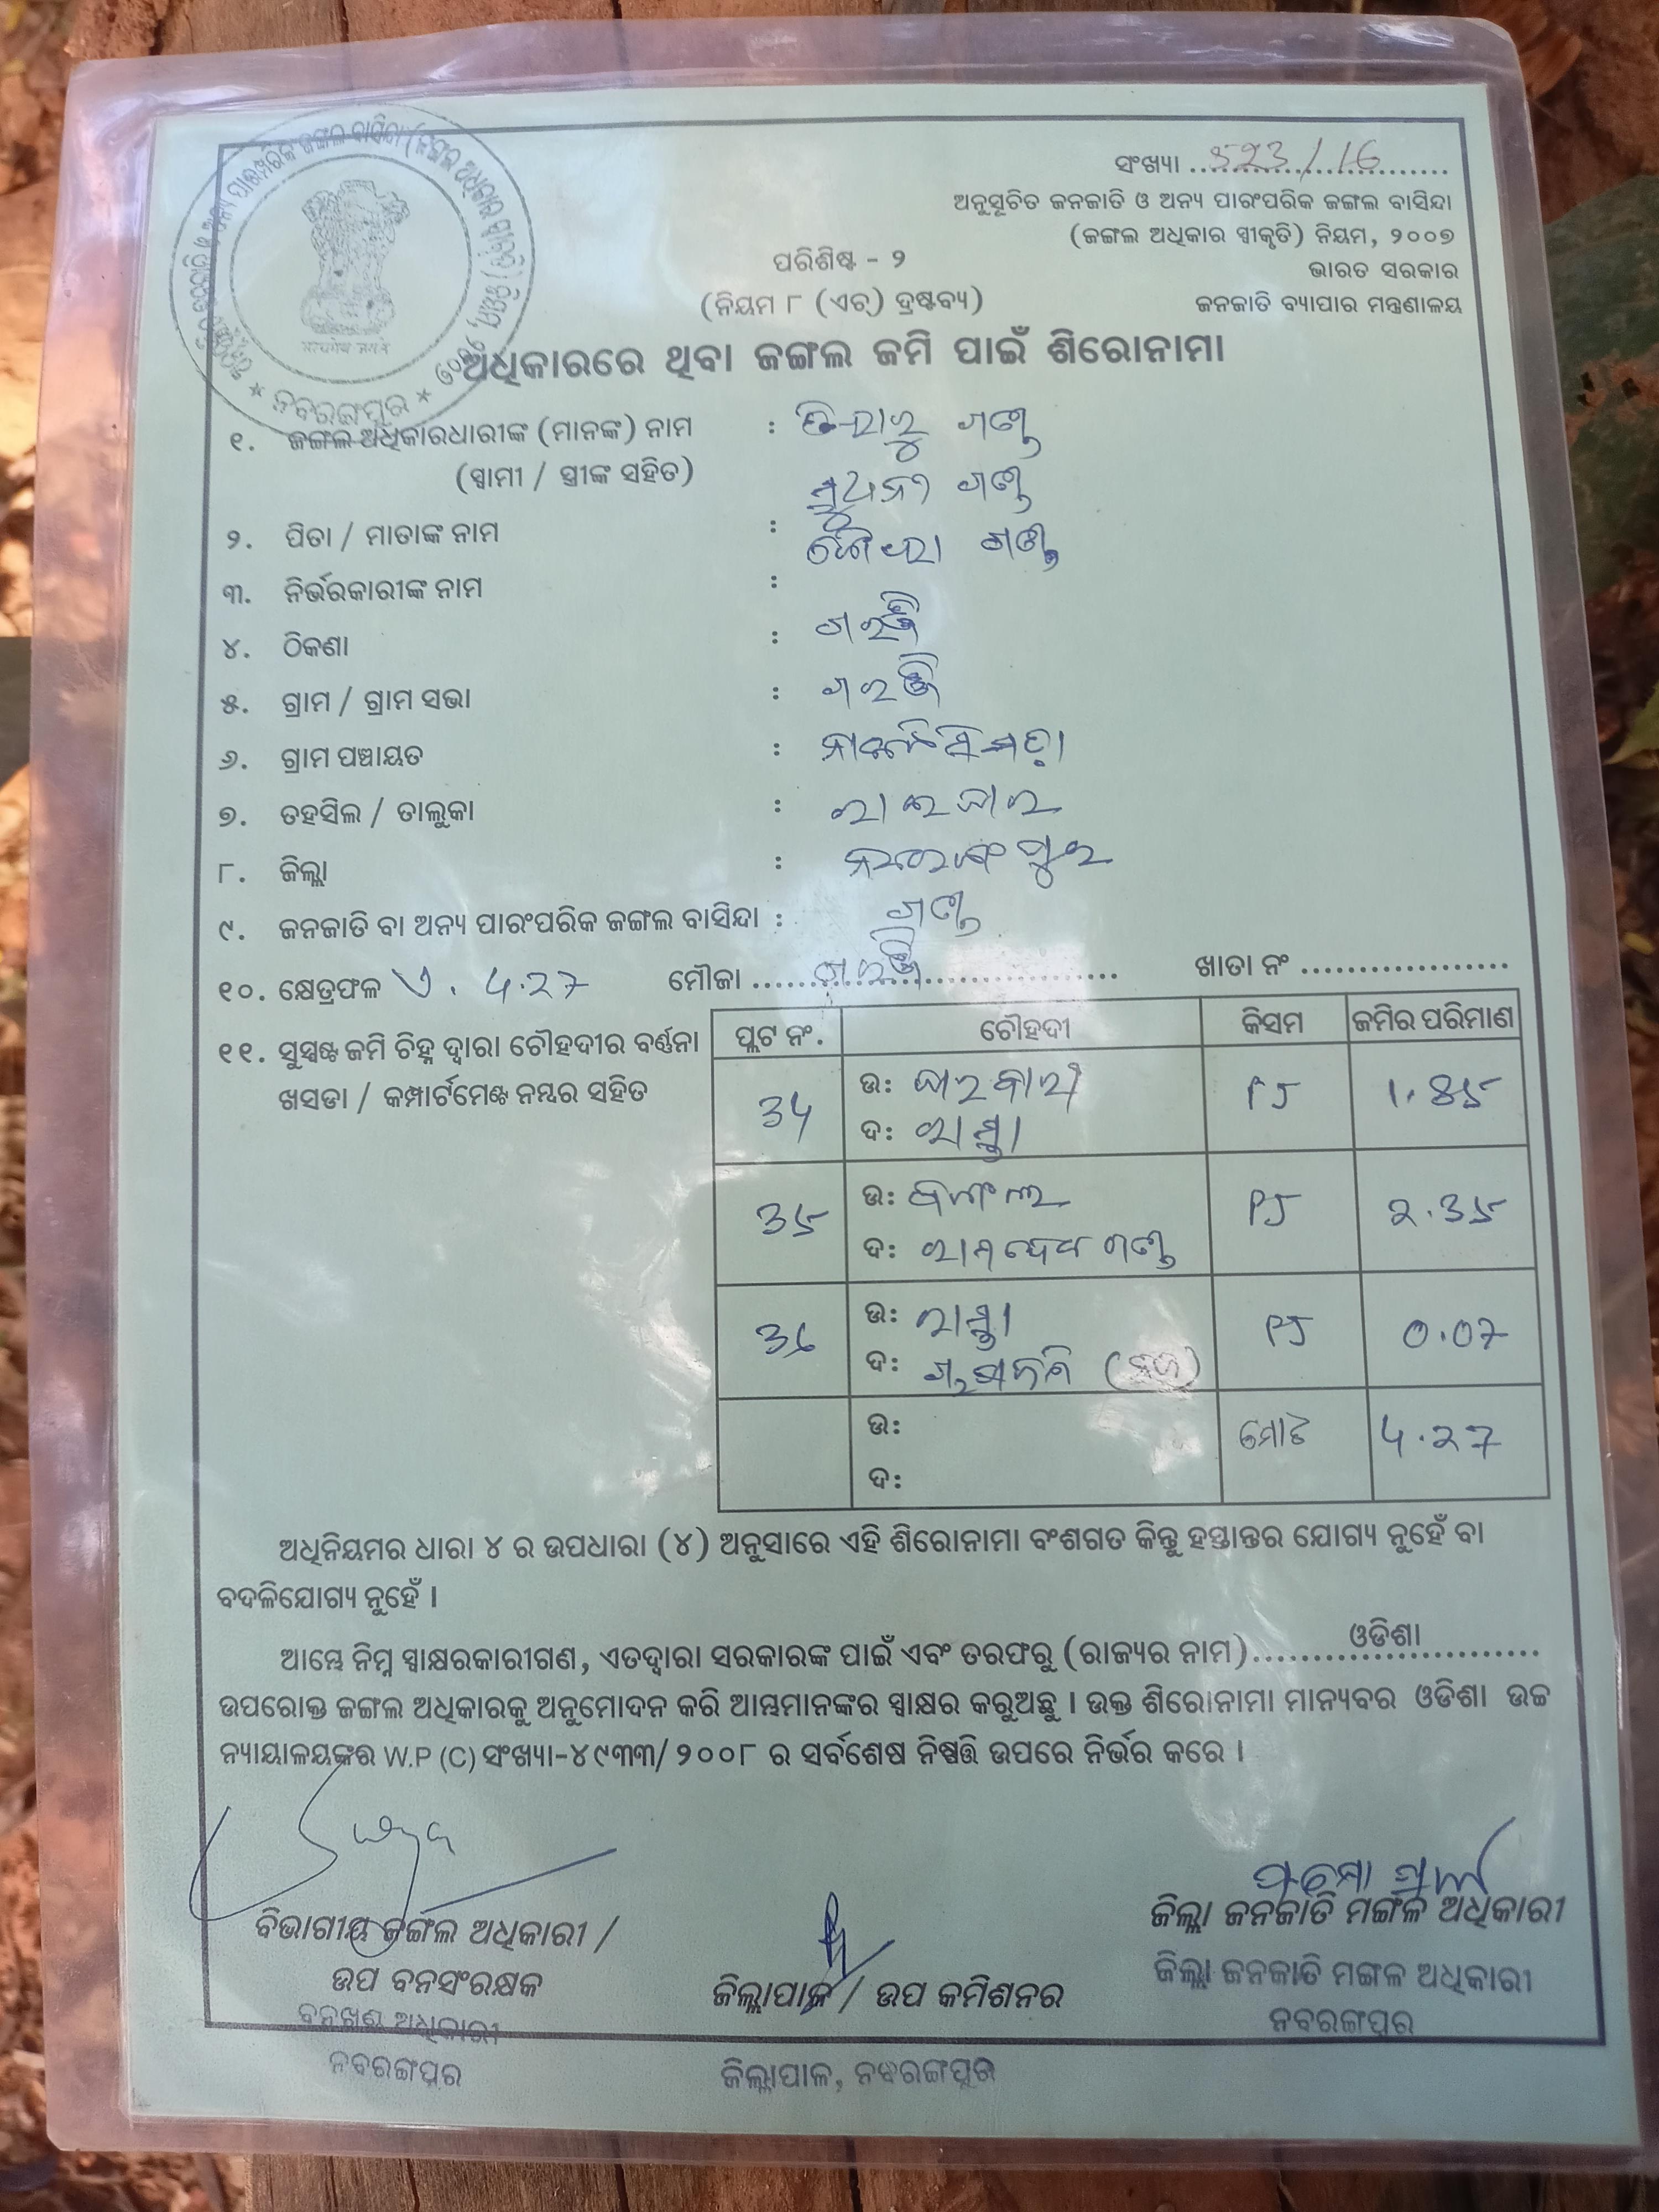 ସଂଖ୍ୟା 523/16
ଅନୁସୂଚିତ ଜନଜାତି ଓ ଅନ୍ୟ ପାରଂପରିକ ଜଙ୍ଗଲ ବାସିନ୍ଦା
(ଜଙ୍ଗଲ ଅଧିକାର ସ୍ୱୀକୃତି) ନିୟମ, ୨୦୦୭
ଭାରତ ସରକାର
ଜନଜାତି ବ୍ୟାପାର ମନ୍ତ୍ରଣାଳୟ
ପରିଶିଷ୍ଟ - ୨
(ନିୟମ ୮ (ଏଚ୍) ଦ୍ରଷ୍ଟବ୍ୟ)
ନବରଙ୍ଗପୁର
ଅଧିକାରରେ ଥିବା ଜଙ୍ଗଲ ଜମି ପାଇଁ ଶିରୋନାମା
୧. ଜଙ୍ଗଲ ଅଧିକାରଧାରୀଙ୍କ (ମାନଙ୍କ) ନାମ : ଗଣ୍ଡ
(ସ୍ୱାମୀ / ସ୍ତ୍ରୀଙ୍କ ସହିତ) ଗଣ୍ଡ
୨. ପିତା / ମାତାଙ୍କ ନାମ : ଗଣ୍ଡ
୩. ନିର୍ଭରକାରୀଙ୍କ ନାମ :
୪. ଠିକଣା :
୫. ଗ୍ରାମ / ଗ୍ରାମ ସଭା :
୬. ଗ୍ରାମ ପଞ୍ଚାୟତ :
୭. ତହସିଲ / ତାଲୁକା : ରାଇଘର
୮. ଜିଲ୍ଲା : ନବରଙ୍ଗପୁର
୯. ଜନଜାତି ବା ଅନ୍ୟ ପାରଂପରିକ ଜଙ୍ଗଲ ବାସିନ୍ଦା : ଗଣ୍ଡ
୧୦. କ୍ଷେତ୍ରଫଳ ଏ. 4.27 ମୌଜା ଖାତା ନଂ
୧୧. ସୁସ୍ପଷ୍ଟ ଜମି ଚିହ୍ନ ଦ୍ୱାରା ଚୌହଦୀର ବର୍ଣ୍ଣନା
ଖସଡା / କମ୍ପାର୍ଟମେଣ୍ଟ ନମ୍ବର ସହିତ
ପ୍ଲଟ ନଂ. ଚୌହଦୀ କିସମ ଜମିର ପରିମାଣ
34 ଉ: PJ 1.85
ଦ: ରାସ୍ତା
35 ଉ: ଜଙ୍ଗଲ PJ 2.35
ଦ: ଗଣ୍ଡ
36 ଉ: ରାସ୍ତା PJ 0.07
ଦ:
ଉ: ମୋଟ 4.27
ଦ:
ଅଧିନିୟମର ଧାରା ୪ ର ଉପଧାରା (୪) ଅନୁସାରେ ଏହି ଶିରୋନାମା ବଂଶଗତ କିନ୍ତୁ ହସ୍ତାନ୍ତର ଯୋଗ୍ୟ ନୁହେଁ ବା
ବଦଳିଯୋଗ୍ୟ ନୁହେଁ ।
ଆମ୍ଭେ ନିମ୍ନ ସ୍ୱାକ୍ଷରକାରୀଗଣ, ଏତଦ୍ୱାରା ସରକାରଙ୍କ ପାଇଁ ଏବଂ ତରଫରୁ (ରାଜ୍ୟର ନାମ) ଓଡିଶା
ଉପରୋକ୍ତ ଜଙ୍ଗଲ ଅଧିକାରକୁ ଅନୁମୋଦନ କରି ଆମ୍ଭମାନଙ୍କର ସ୍ୱାକ୍ଷର କରୁଅଛୁ । ଉକ୍ତ ଶିରୋନାମା ମାନ୍ୟବର ଓଡିଶା ଉଚ୍ଚ
ନ୍ୟାୟାଳୟଙ୍କର W.P (C) ସଂଖ୍ୟା-୪୯୩୩/୨୦୦୮ ର ସର୍ବଶେଷ ନିଷ୍ପତ୍ତି ଉପରେ ନିର୍ଭର କରେ ।
ବିଭାଗୀୟ ଜଙ୍ଗଲ ଅଧିକାରୀ /
ଉପ ବନସଂରକ୍ଷକ
ବନଖଣ୍ଡ ଅଧିକାରୀ
ନବରଙ୍ଗପୁର
ଜିଲ୍ଲାପାଳ / ଉପ କମିଶନର
ଜିଲ୍ଲାପାଳ, ନବରଙ୍ଗପୁର
ଜିଲ୍ଲା ଜନଜାତି ମଙ୍ଗଳ ଅଧିକାରୀ
ଜିଲ୍ଲା ଜନଜାତି ମଙ୍ଗଳ ଅଧିକାରୀ
ନବରଙ୍ଗପୁର